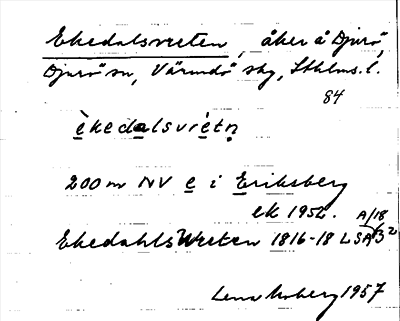 Ekedalsvreten, åker å Djurö,
Djurö sn, Värmdö skg, Sthlms. l.
84
èkedalsvrétn
200 m NV e i Eriksberg
ek 1952.
Ekedahls Wreten 1816-18 LSA A/18
Lena Moberg 1957